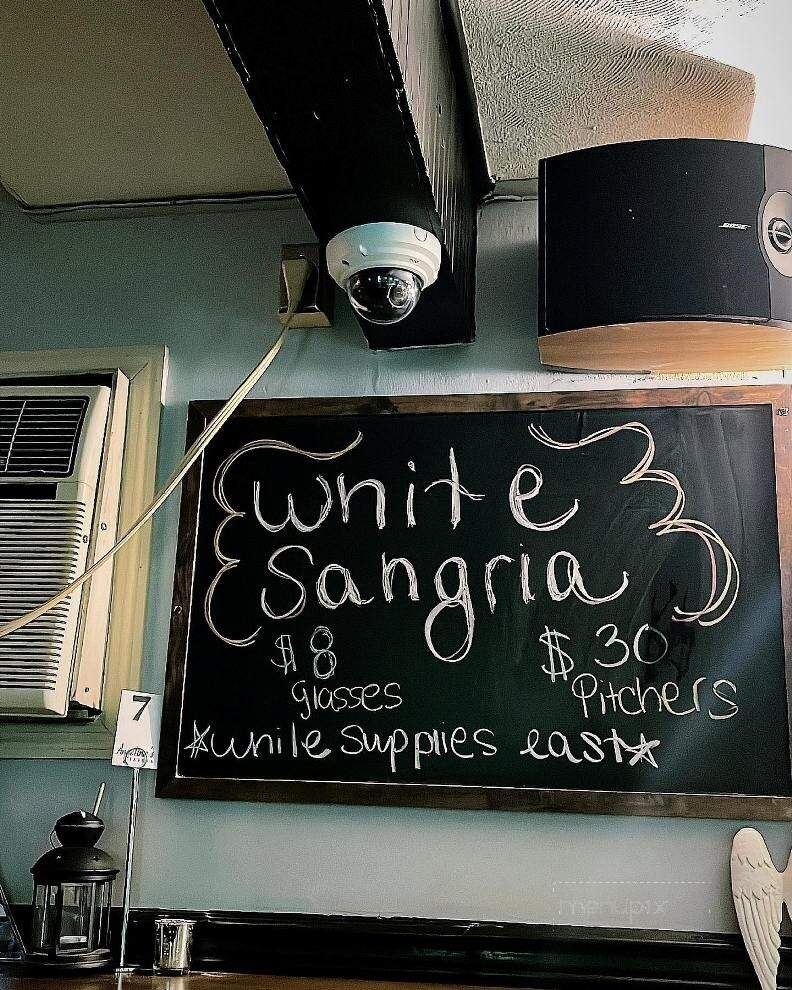 BOSE
White
Sangria
$8 $30
glasses Pitchers
☆while supplies east☆
7
menupix